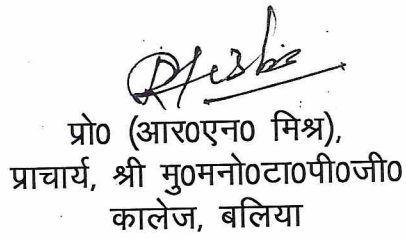 प्रो0 (आर0एन0 मिश्र),
प्राचार्य, श्री मु0मनो0टा0पी0जी0
कालेज, बलिया